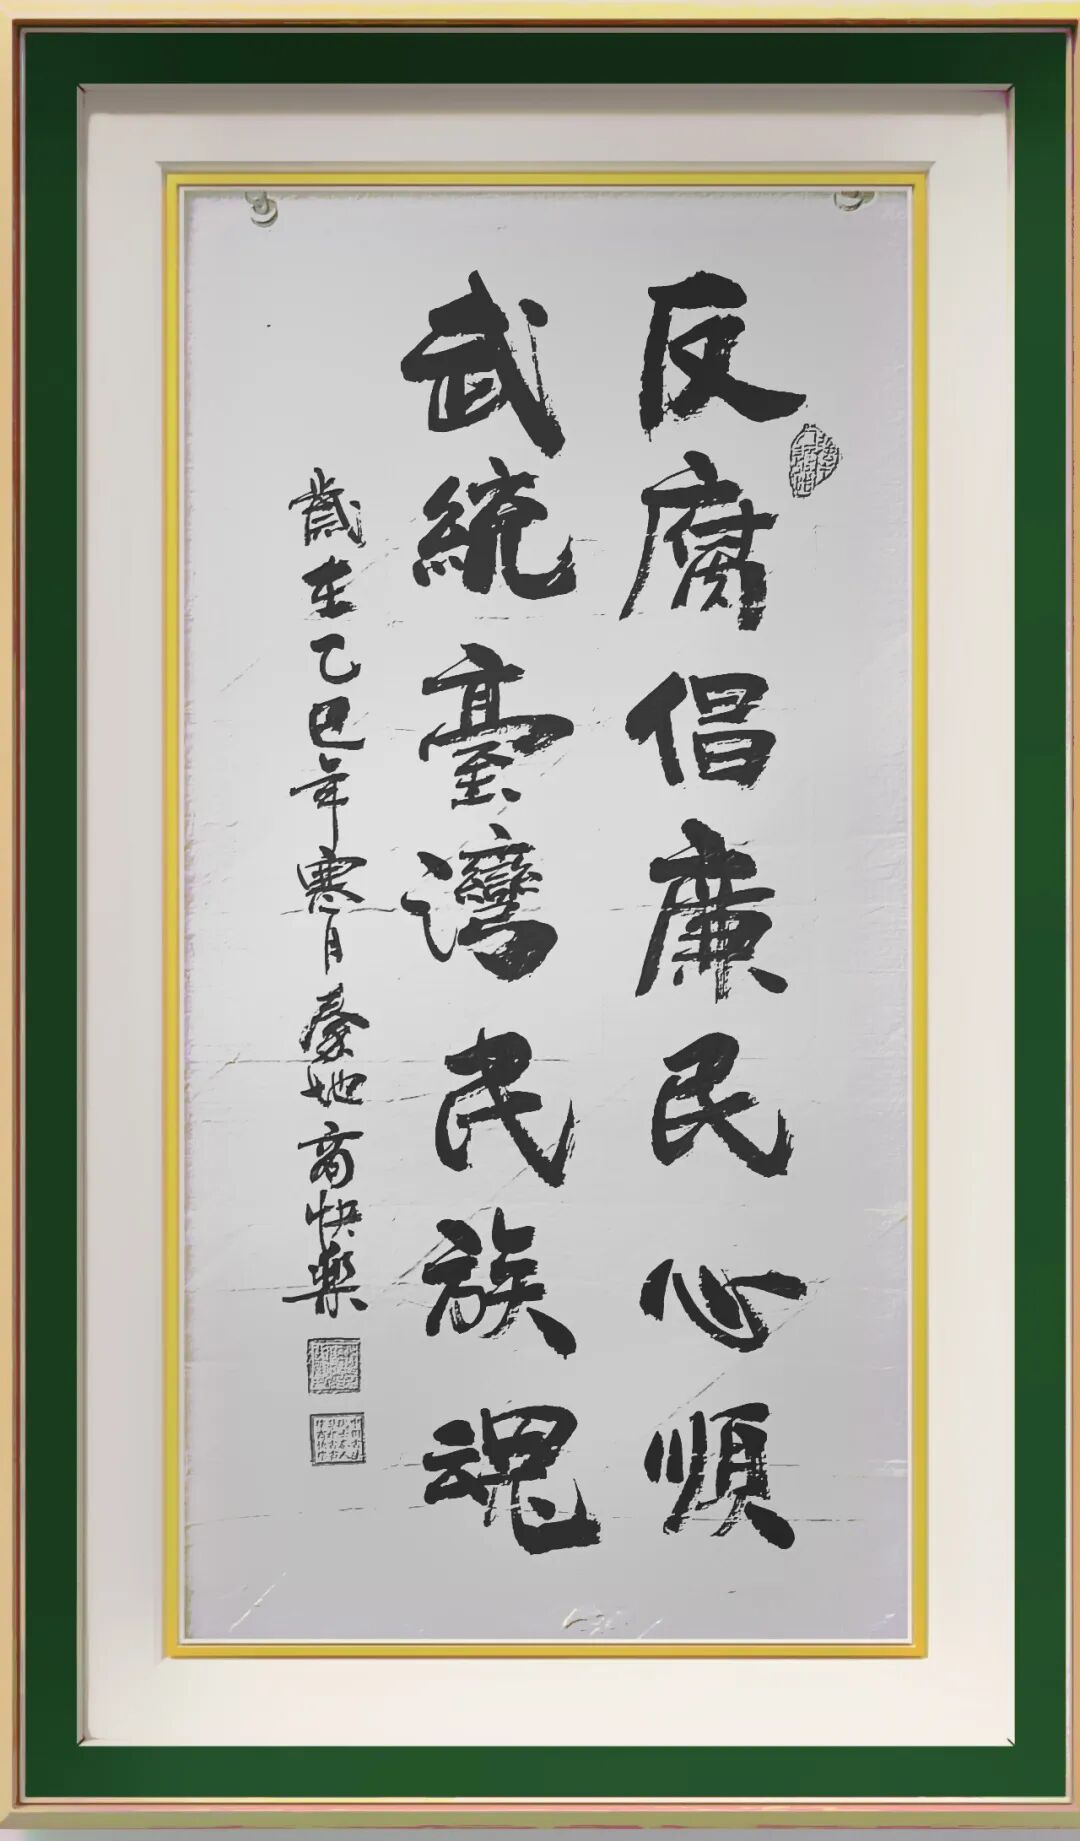 反腐倡廉民心順
武統臺灣民族魂
歲在乙巳年寒月秦地高快樂